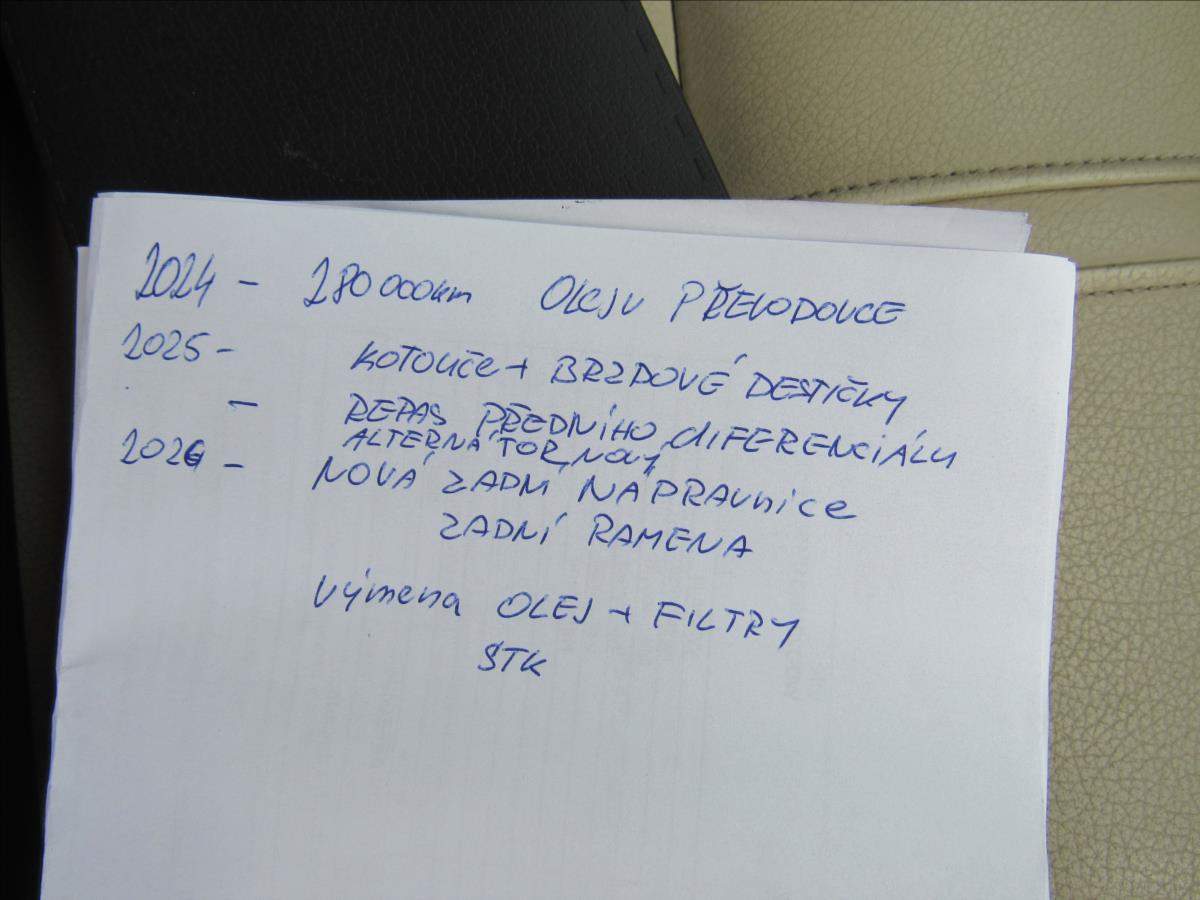 2024 - 280 000km OLEJU PŘEVODOVCE
2025 - KOTOUČE + BRZDOVÉ DESTIČKY
- REPAS PŘEDNÍHO DIFERENCIÁLU
ALTERNÁTOR NOVÝ
2026 - NOVÁ ZADNÍ NÁPRAVNICE
ZADNÍ RAMENA
Výmena OLEJ + FILTRY
STK